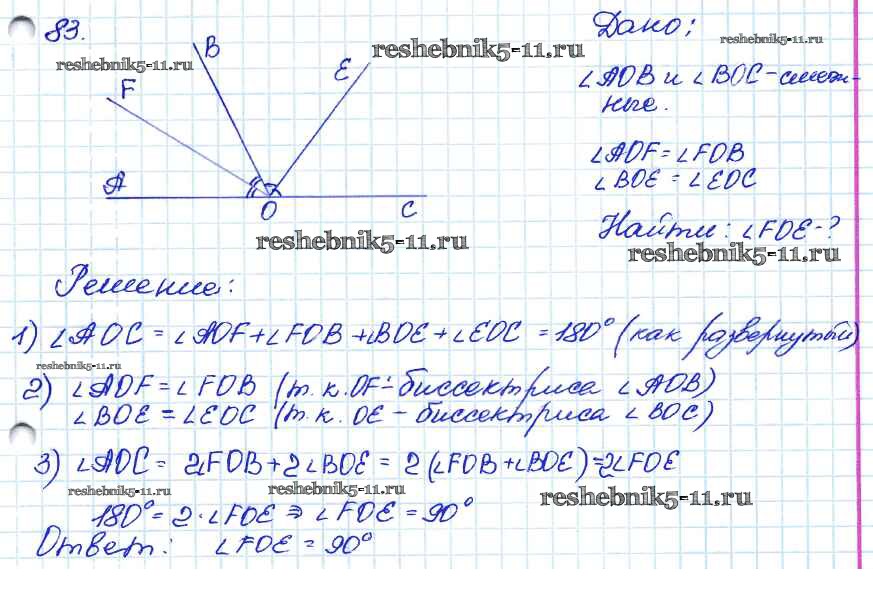 83.
B
reshebnik5-11.ru
F
E
reshebnik5-11.ru
A
O
C
reshebnik5-11.ru
Дано:
reshebnik5-11.ru
∠AOB и ∠BOC - смеж-
ные.
∠AOF = ∠FOB
∠BOE = ∠EOC
Найти: ∠FOE - ?
reshebnik5-11.ru
Решение:
1) ∠AOC = ∠AOF + ∠FOB + ∠BOE + ∠EOC = 180° (как развернутый)
reshebnik5-11.ru
2) ∠AOF = ∠FOB (т.к. OF - биссектриса ∠AOB)
∠BOE = ∠EOC (т.к. OE - биссектриса ∠BOC)
3) ∠AOC = 2∠FOB + 2∠BOE = 2(∠FOB + ∠BOE) = 2∠FOE
reshebnik5-11.ru
reshebnik5-11.ru
reshebnik5-11.ru
180° = 2·∠FOE ⇒ ∠FOE = 90°
Ответ: ∠FOE = 90°